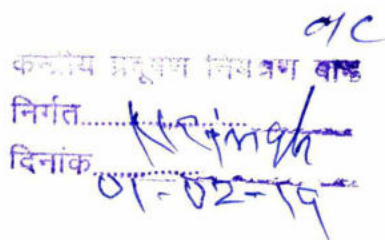 O/C
केन्द्रीय प्रदूषण नियंत्रण बोर्ड
निर्गत..........
दिनांक..........
01-02-19